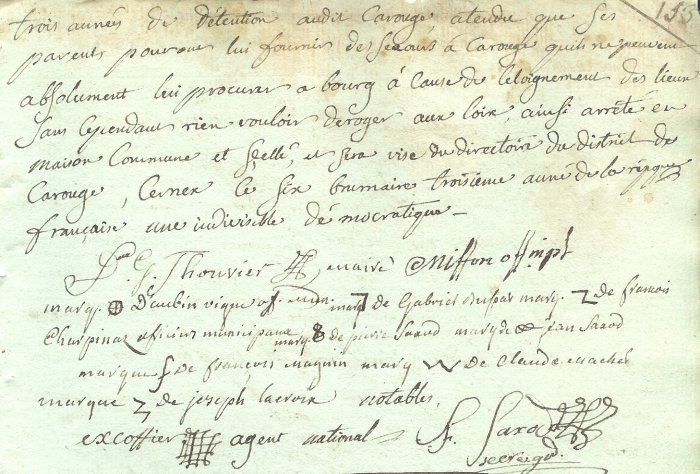 trois années de détention audit Carouge, atendu que ses
parents pouront lui fournir des secours à Carouge quils ne peuvent
absolument lui procurer a bourg à Cause de l'eloignement des lieux
sans Cependant rien vouloir déroger aux loix, ainsi arrêté en
maison Commune et Scellé, et sera visé du directoire du district de
Carouge, Cernex le six brumaire troisieme année de la répque
française une indivisible démocratique
G. Thouvier maire Miffon off. mpl
marq. D'aubin vique of. mun. marq 7 de Gabriel dupar marq. Z de francois
Charpinaz oficiers municipaux marq 8 de pierre Saxod marq de jean Saxod
marque f de françois magnin marq W de Claude
marque Z de joseph lacroix notables.
excoffier agent national Saxod
secrei gre.
155